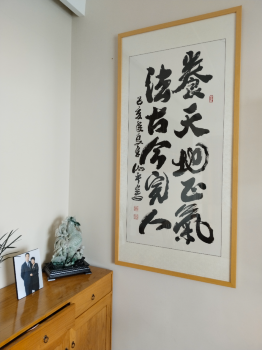 養天地正氣
法古今完人
己亥